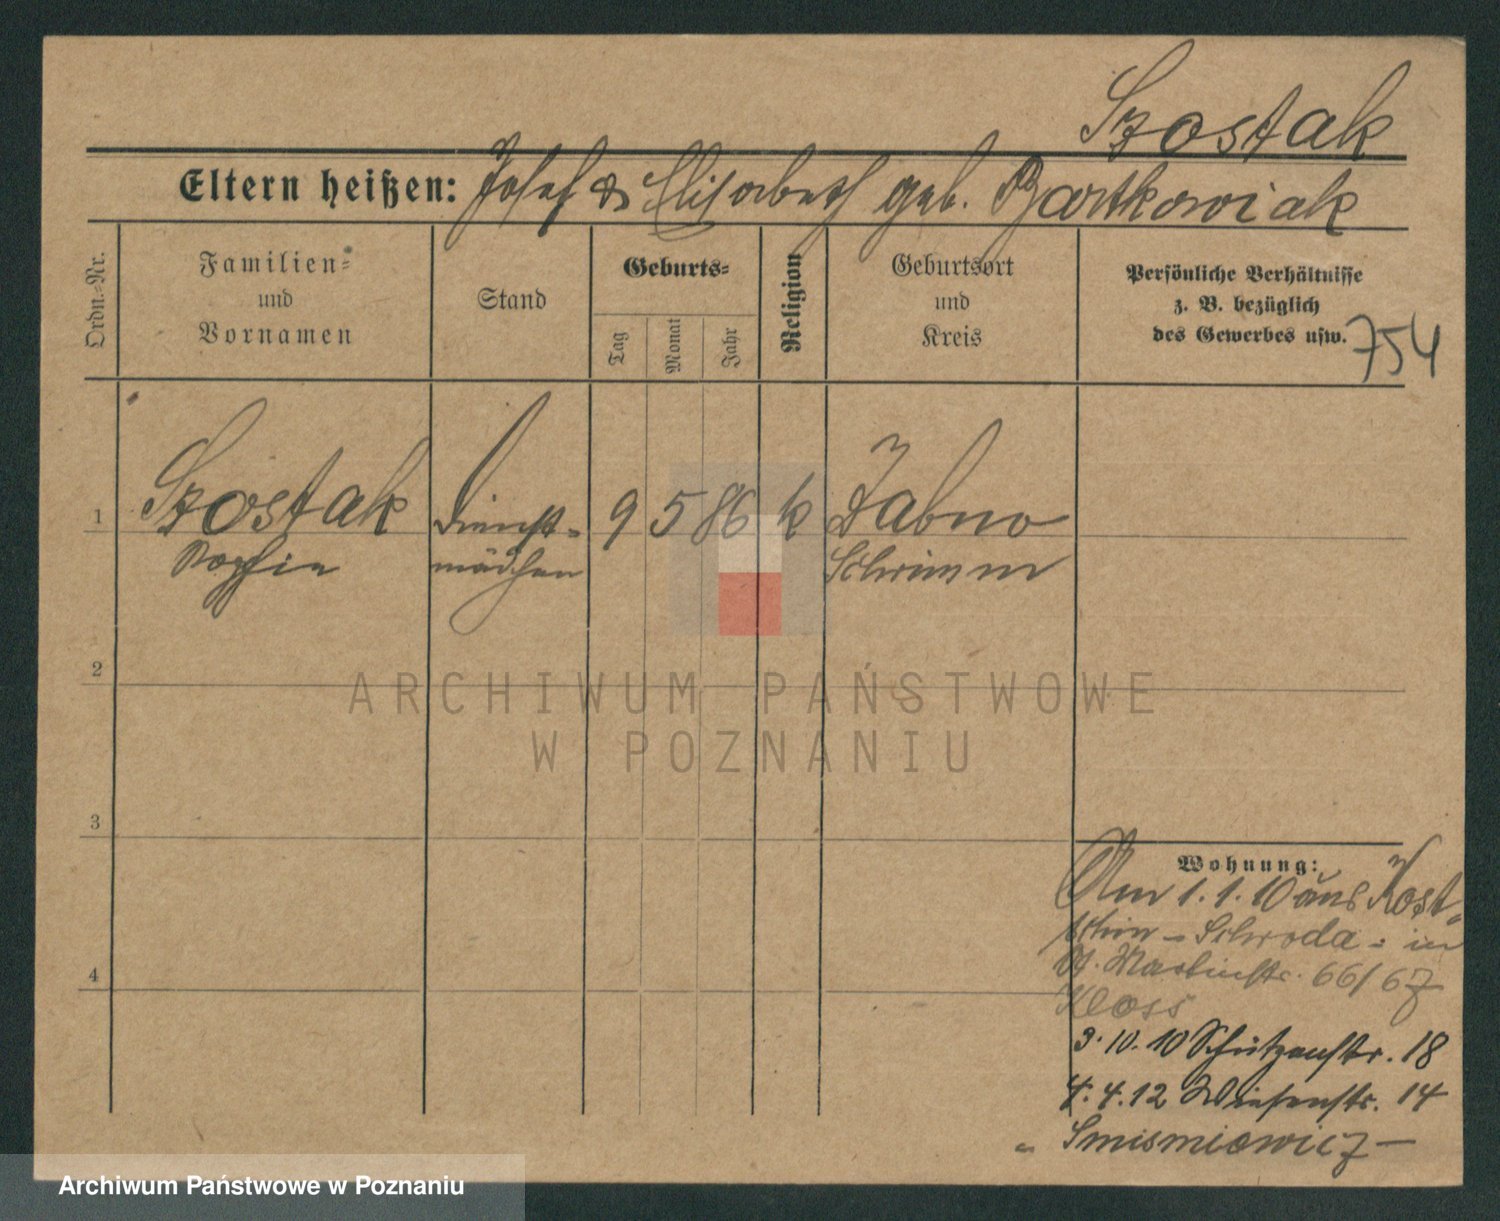 Szostak
Eltern heißen: Josef & Elisabeth geb. Bartkowiak
Ordn.-Nr.
Familien-
und
Vornamen
Stand
Geburts-
Tag
Monat
Jahr
Religion
Geburtsort
und
Kreis
Persönliche Verhältnisse
z. B. bezüglich
des Gewerbes usw.
754
1 Szostak Dienst- 9 5 86 k Zabno
Sophie mädchen Schrimm
2
3
4
Wohnung:
Am 1.1.10 aus Kost-
schin - Schroda - in
St. Martinstr. 66/67
Kloss
3.10.10 Schützenstr. 18
4.4.12 Wiesenstr. 14
" Smismiewicz -
ARCHIWUM PAŃSTWOWE
W POZNANIU
Archiwum Państwowe w Poznaniu